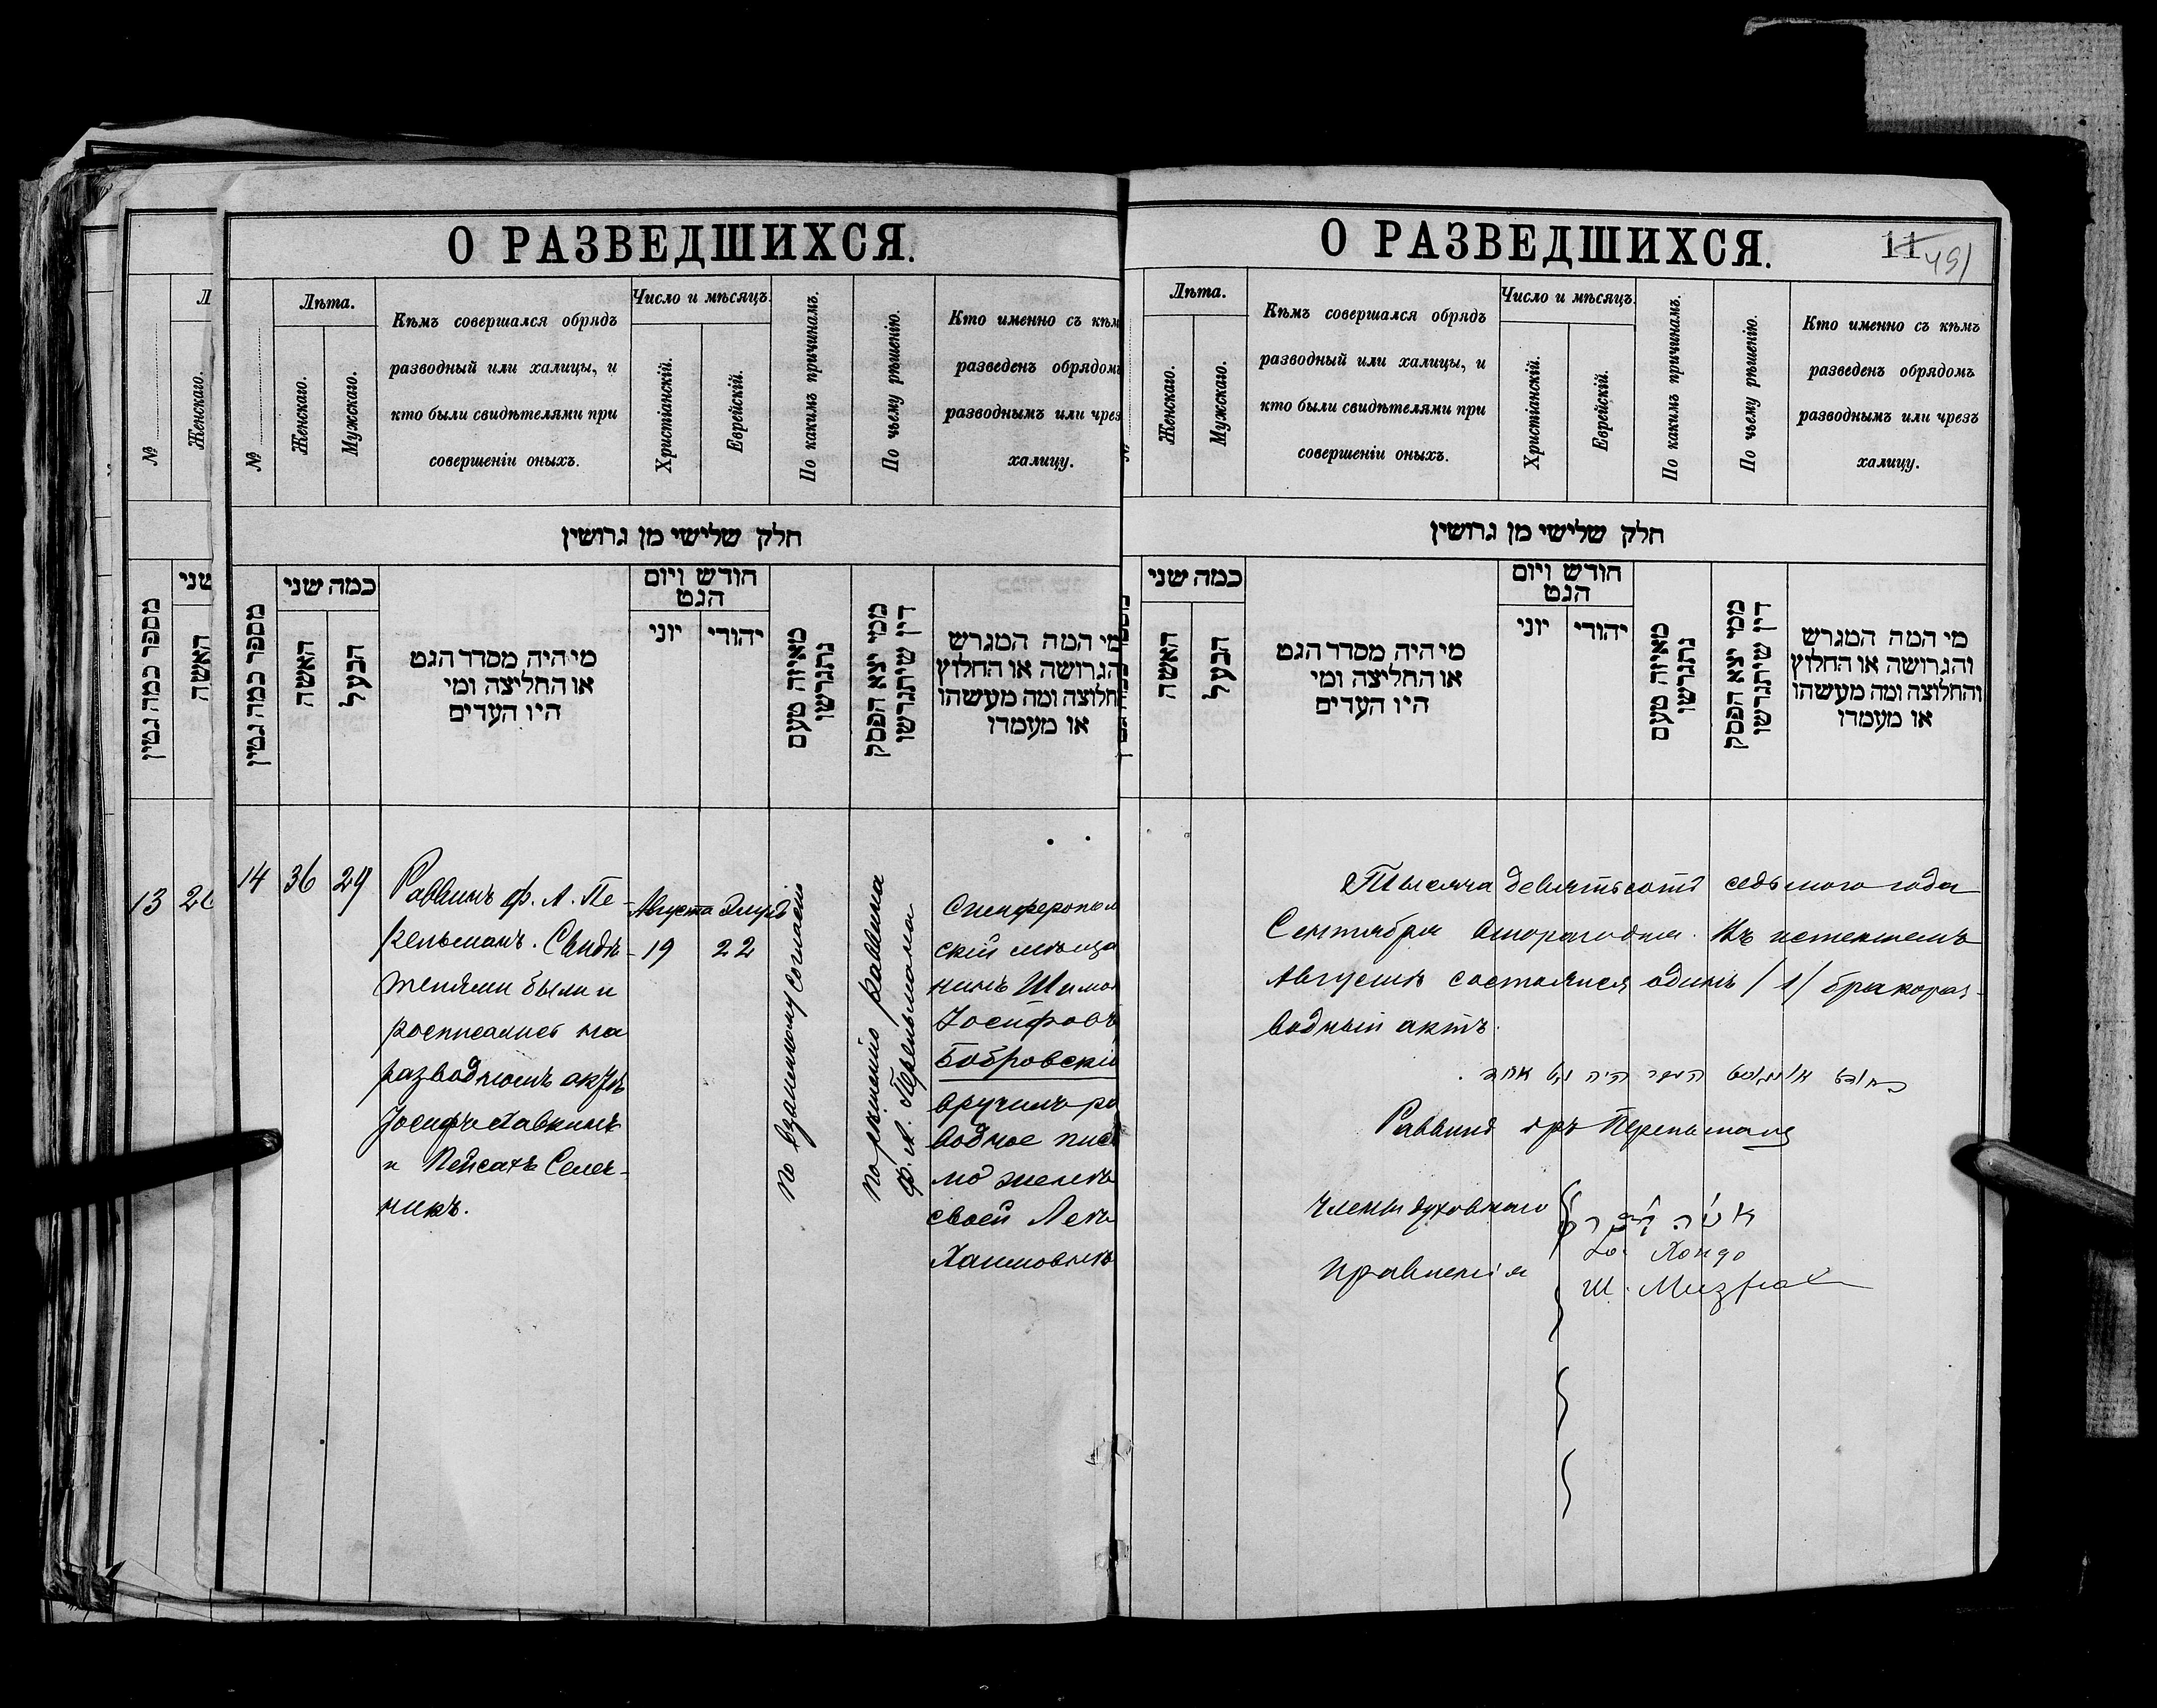 О РАЗВЕДШИХСЯ.
№
Лѣта.
Женскаго.
Мужскаго.
Кѣмъ совершался обрядъ
разводный или халицы, и
кто были свидѣтелями при
совершеніи оныхъ.
Число и мѣсяцъ.
Христіанскій.
Еврейскій.
По какимъ причинамъ.
По чьему рѣшенію.
Кто именно съ кѣм
разведенъ обрядом
разводнымъ или чрез
халицу.
חלק שלישי מן גרושין
מספר כמה גטין
כמה שני
האשה
הבעל
מי היה מסדר הגט
או החליצה ומי
היו העדים
חודש ויום
הגט
יוני
יהודי
מאיזה טעם
נתגרשו
ממי יצא הפסק
דין שיתגרשו
מי המה המגרש
הגרושה או החלוץ
חלוצה ומה מעשהו
או מעמדו
№
Женскаго.
מספר כמה גטין
שני
האשה
13
14 36 29
Раввинъ Ф. А. Пе-
рельманъ. Свидѣ-
телями были и
росписались на
разводномъ актѣ
Іосифъ Хавкинъ
и Пейсахъ Селеч-
никъ.
Августа
19
Элулъ
22
по взаимному согласію
по рѣшенію раввина
Ф. А. Перельмана
Симферопол
скій мѣща
нинъ Шимон
Іосифовъ
Бобровскій
вручилъ ра
водное пис
мо женѣ
своей Леѣ
Хаимовнѣ
О РАЗВЕДШИХСЯ.
11
491
Лѣта.
Женскаго.
Мужскаго.
Кѣмъ совершался обрядъ
разводный или халицы, и
кто были свидѣтелями при
совершеніи оныхъ.
Число и мѣсяцъ.
Христіанскій.
Еврейскій.
По какимъ причинамъ.
По чьему рѣшенію.
Кто именно съ кѣмъ
разведенъ обрядомъ
разводнымъ или чрезъ
халицу.
חלק שלישי מן גרושין
כמה שני
האשה
הבעל
מי היה מסדר הגט
או החליצה ומי
היו העדים
חודש ויום
הגט
יוני
יהודי
מאיזה טעם
נתגרשו
ממי יצא הפסק
דין שיתגרשו
מי המה המגרש
והגרושה או החלוץ
והחלוצה ומה מעשהו
או מעמדו
Тысяча девятьсотъ седьмого года
Сентября второго дня. Въ истекшемъ
Августѣ состоялся одинъ /1/ бракораз-
водный актъ.
בחודש אויגוסט העבר היה גט אחד.
Раввинъ Перельманъ
Члены духовнаго
Правленія
Хондо
Ш. Мизрах